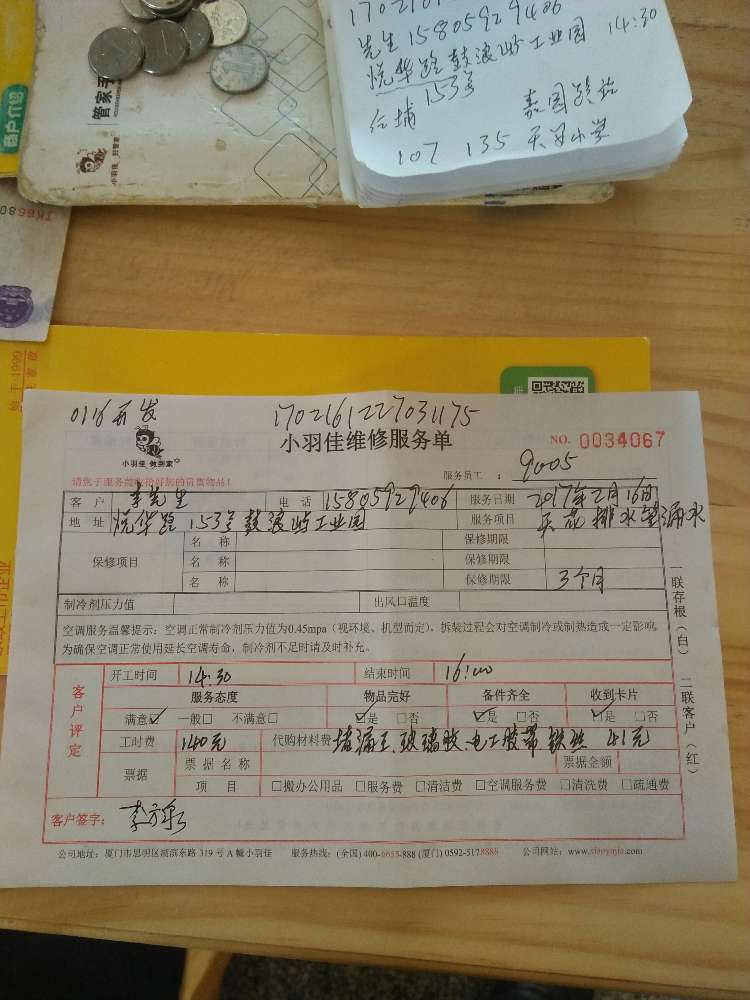 商户介绍
管家
小羽佳 好管家
先生 15805929406
悦华路鼓浪屿工业园 14:30
153号
107 135 天安小学
170216122703 1175
小羽佳 做到家
小羽佳维修服务单
NO. 0034067
服务员工： 9005
客户 李先生 电话 15805929406 服务日期 2017年2月16日
地址 悦华路153号鼓浪屿工业园 服务项目 天花排水管漏水
保修项目
名称 保修期限
名称 保修期限
名称 保修期限 3个月
制冷剂压力值 出风口温度
空调服务温馨提示：空调正常制冷剂压力值为0.45mpa（视环境、机型而定），拆装过程会对空调制冷或制热造成一定影响，
为确保空调正常使用延长空调寿命，制冷剂不足时请及时补充。
客户评定
开工时间 14:30 结束时间 16:00
服务态度 物品完好 备件齐全 收到卡片
满意☑ 一般□ 不满意□ ☑是 □否 ☑是 □否 ☑是 □否
工时费 140元 代购材料费 堵漏王、玻璃胶、电工胶带、铁丝 41元
票据 票据名称 票据金额
项目 □搬办公用品 □服务费 □清洁费 □空调服务费 □清洗费 □疏通费
客户签字：
一联存根（白） 二联客户（红）
公司地址：厦门市思明区湖滨东路 319 号 A 幢小羽佳 服务热线：(全国) 400-6655-888 (厦门) 0592-5178888 公司网站：www.xiaoyujia.com